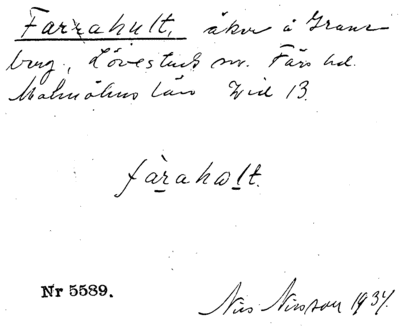 Farrahult, åker å Grams-
berg, Lövestads sn. Färs hd.
Malmöhus län Z jd 13.
fàrahωlt.
Nr 5589.
Nils Nilsson 1934.